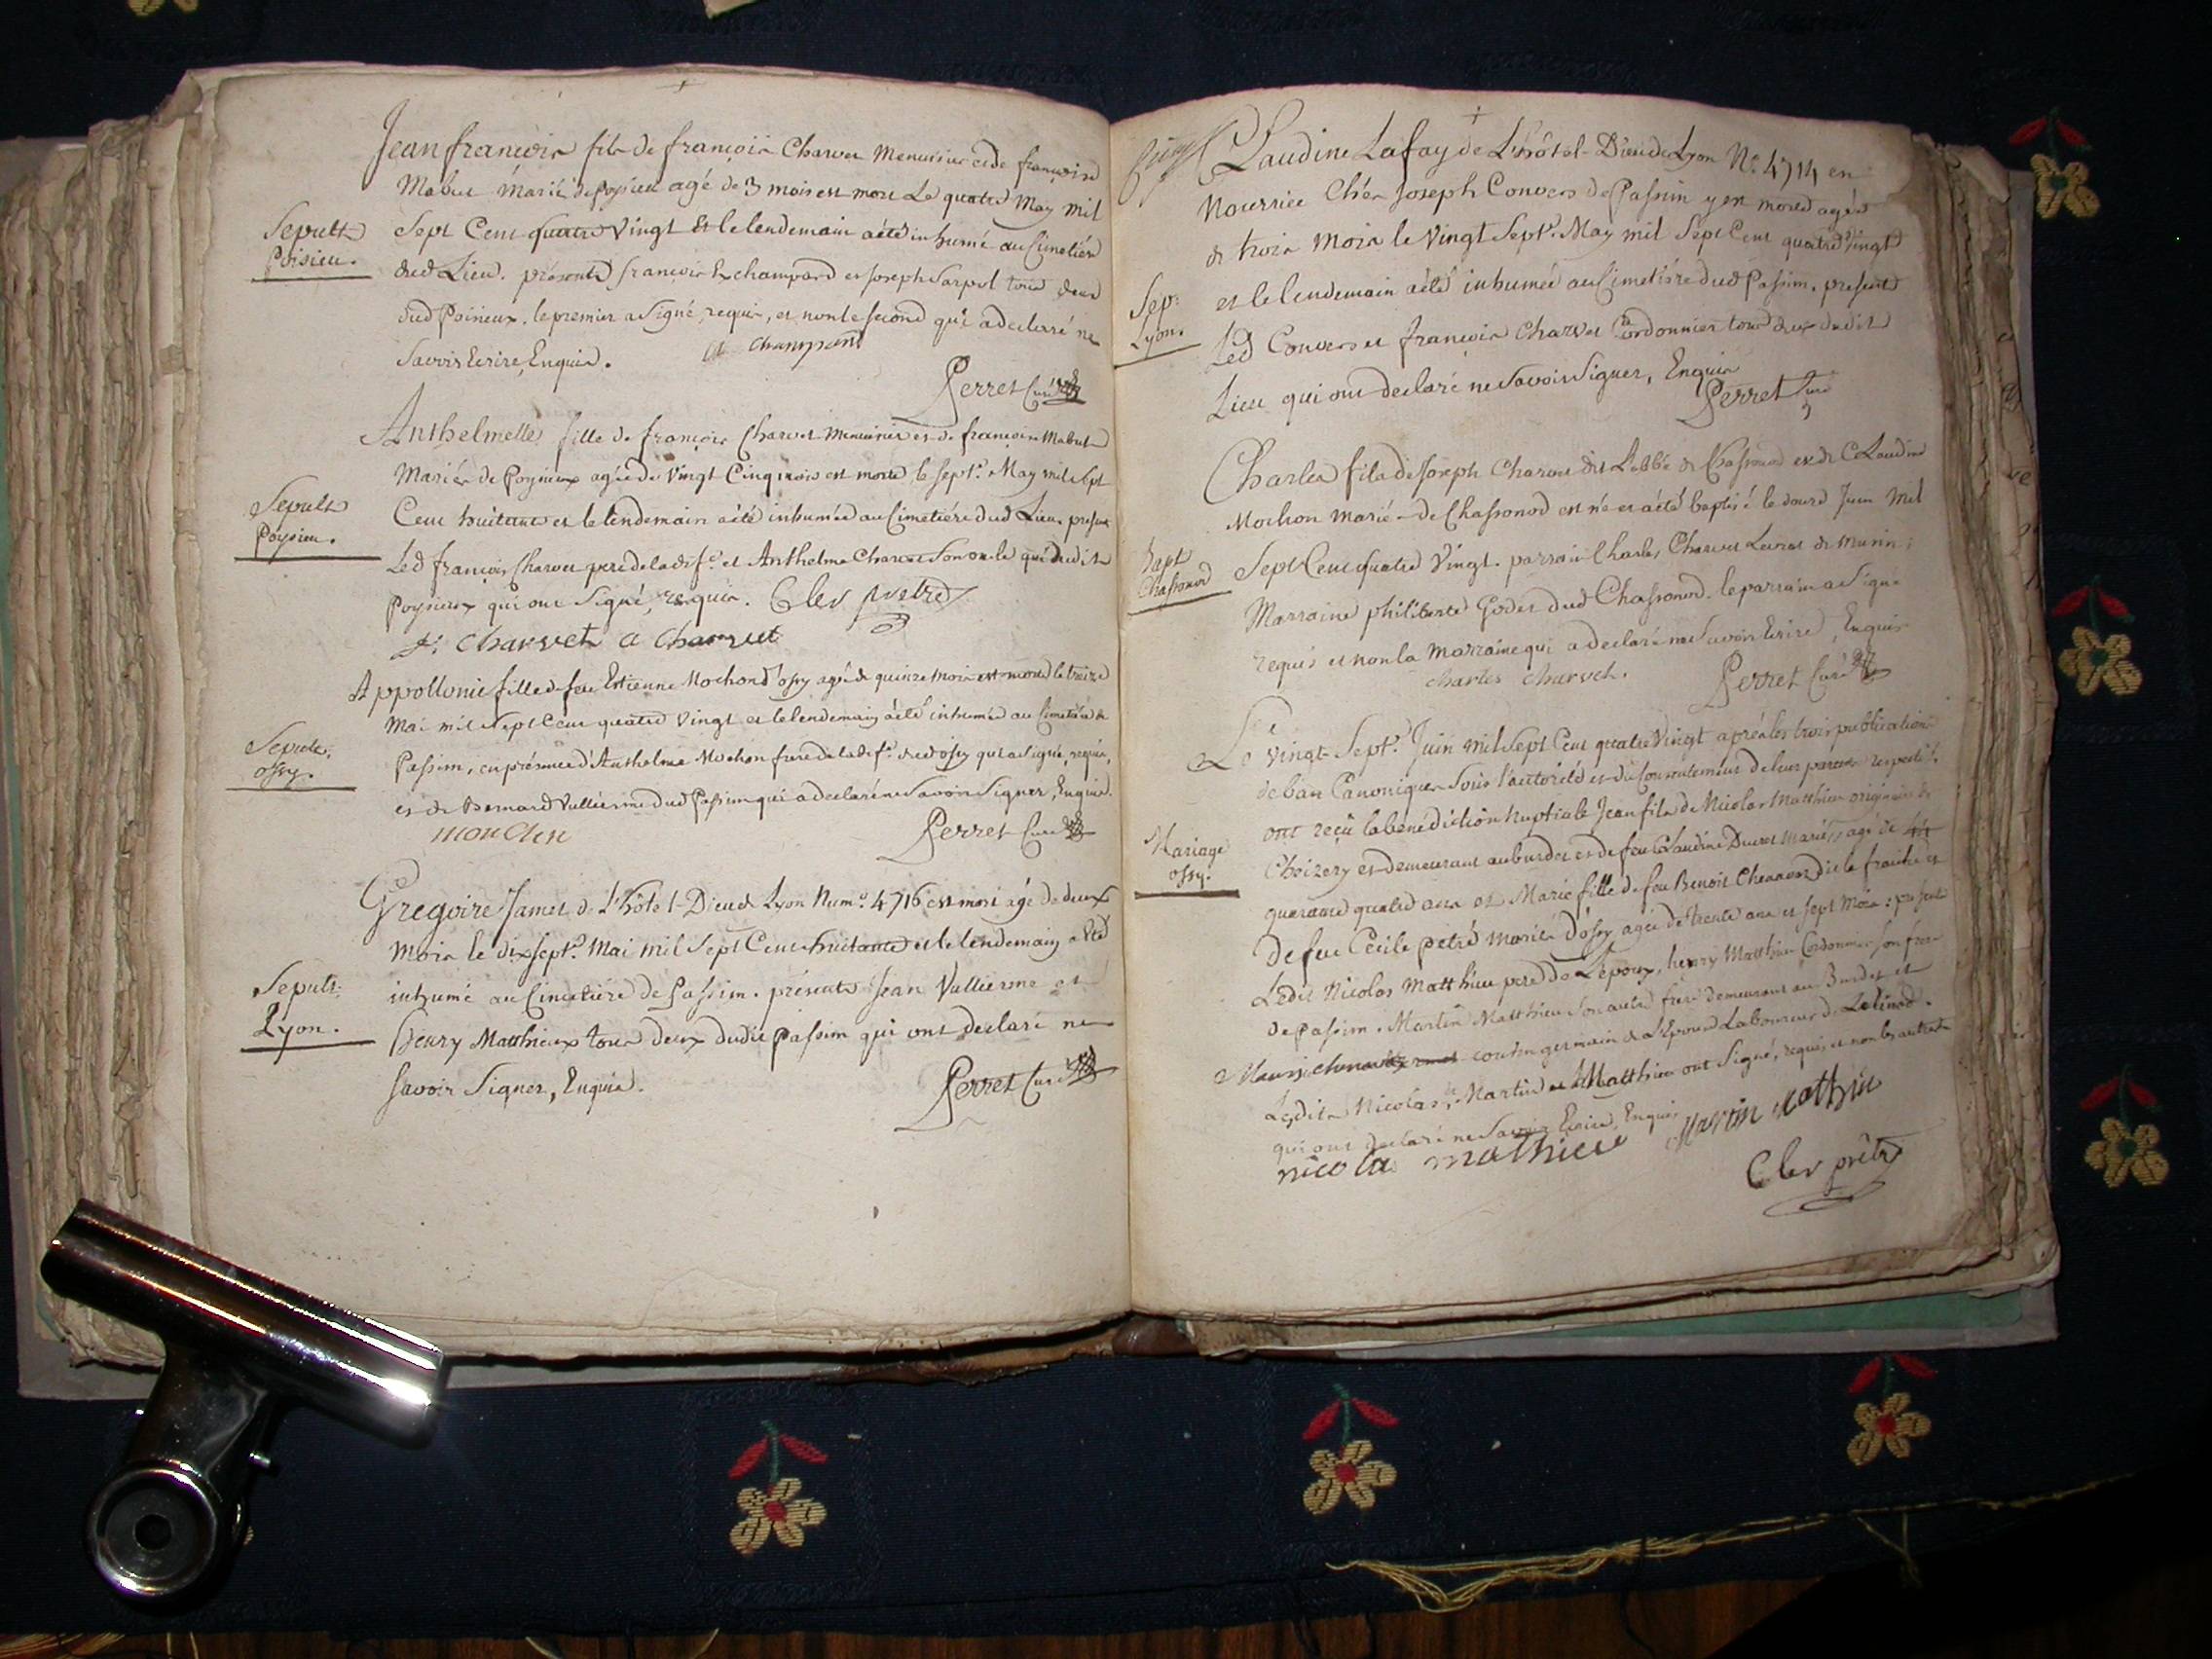 Jean françois fils de françois Charvet Menuisier et de françoise
Mabut Mariés de Poysieu agé de 3 mois est mort Le quatre May mil
Sept Cent quatre Vingt et le lendemain a été inhumé au Cimetière
dud Lieu. présents françois Champard et Joseph Sarpol tous deux
dud Poisieux. le premier a Signé, requis, et non le second qui a declaré ne
Savoir Ecrire, Enquis.
Champard
Perret Curé
Sepult
Poisieu.
Anthelmelle fille de françois Charvet Menuisier et de françoise Mabut
Mariés de Poysieux agée de Vingt Cinq mois est morte le sept.e May mil sept
Cent huitante et le lendemain a été inhumée au Cimetière dud Lieu. present
Led françois Charvet pere de lad f.e et Anthelme Charvet Son oncle qui dudit
Poysieux qui ont Signé, requis. Cler prêtre
f: Charvet a Charvet
Sepult
Poysieu.
Appollonie fille de feu Estienne Mochon d'ossy agée de quinze mois est morte le treize
Mai mil Sept Cent quatre Vingt et le lendemain a été inhumée au Cimetière de
Passim, en présence d'Anthelme Mochon frere de lade f.e dud ossy qui a Signé, requis,
et de Bernard Vullierme dud Passim qui a declaré ne Savoir Signer, Enquis.
mochon
Perret Curé
Sepult.
ossy.
Gregoire Jamet de L'hôtel-Dieu de Lyon Num.o 4716 est mort agé de deux
Mois le dix sept.e Mai mil Sept Cent huitante et le lendemain a été
inhumé au Cimetière de Passim. présents Jean Vullierme et
henry Matthieux tous deux dudit Passim qui ont declaré ne
savoir Signer, Enquis.
Perret Curé
Sepult:
Lyon.
Claudine Lafay de L'hôtel-Dieu de Lyon No. 4714 en
Nourrice Chés Joseph Convers de Passim y est morte agée
de trois Mois le Vingt Sept.e May mil Sept Cent quatre Vingt
et le lendemain a été inhumée au Cimetière dud Passim. present
Led Convers et françois Charvet Cordonnier tous deux dudit
Lieu qui ont declaré ne Savoir Signer, Enquis
Perret Curé
Sep:
Lyon.
Charles fils de Joseph Charvet dit L'abbé de Chassonod et de Claudine
Mochon Mariés de Chassonod est né et a été baptisé le douze Juin Mil
Sept Cent quatre Vingt. parrain Charles Charvet
Marraine philiberte Godet dud Chassonod. le parrain a Signé
requis et non la Marraine qui a declaré ne Savoir Ecrire, Enquis
charles charvet.
Perret Curé
Bapt
Chassonod
Le vingt Sept.e Juin mil Sept Cent quatre Vingt après les trois publications
de ban Canoniques Sous l'autorité et du Consentement de leur parents respectifs,
ont reçû la bénédiction nuptiale Jean fils de Nicolas Matthieu originaire de
Choizery et demeurant au burdet et de feu Claudine Ducret Mariés agé de 44
quarante quatre ans et Marie fille de feu Benoit Chenavaz dit le fraitre et
De feu Cécile petré Mariés d'ossy agée de trente ans et Sept Mois: present
Ledit Nicolas Matthieu pere de L'époux, henry Matthieu Cordonnier son frere
de passim. Martin Matthieu Son autre frere demeurant au Burdet et
cousin germain de L'Epouse Laboureur de
Lesdits Nicolas, Martin Matthieu ont Signé, requis, et non les autres
qui ont declaré ne Savoir Ecrire, Enquis
nicolas mathieu Martin Mathieu
Cler prêtre
Mariage
ossy.